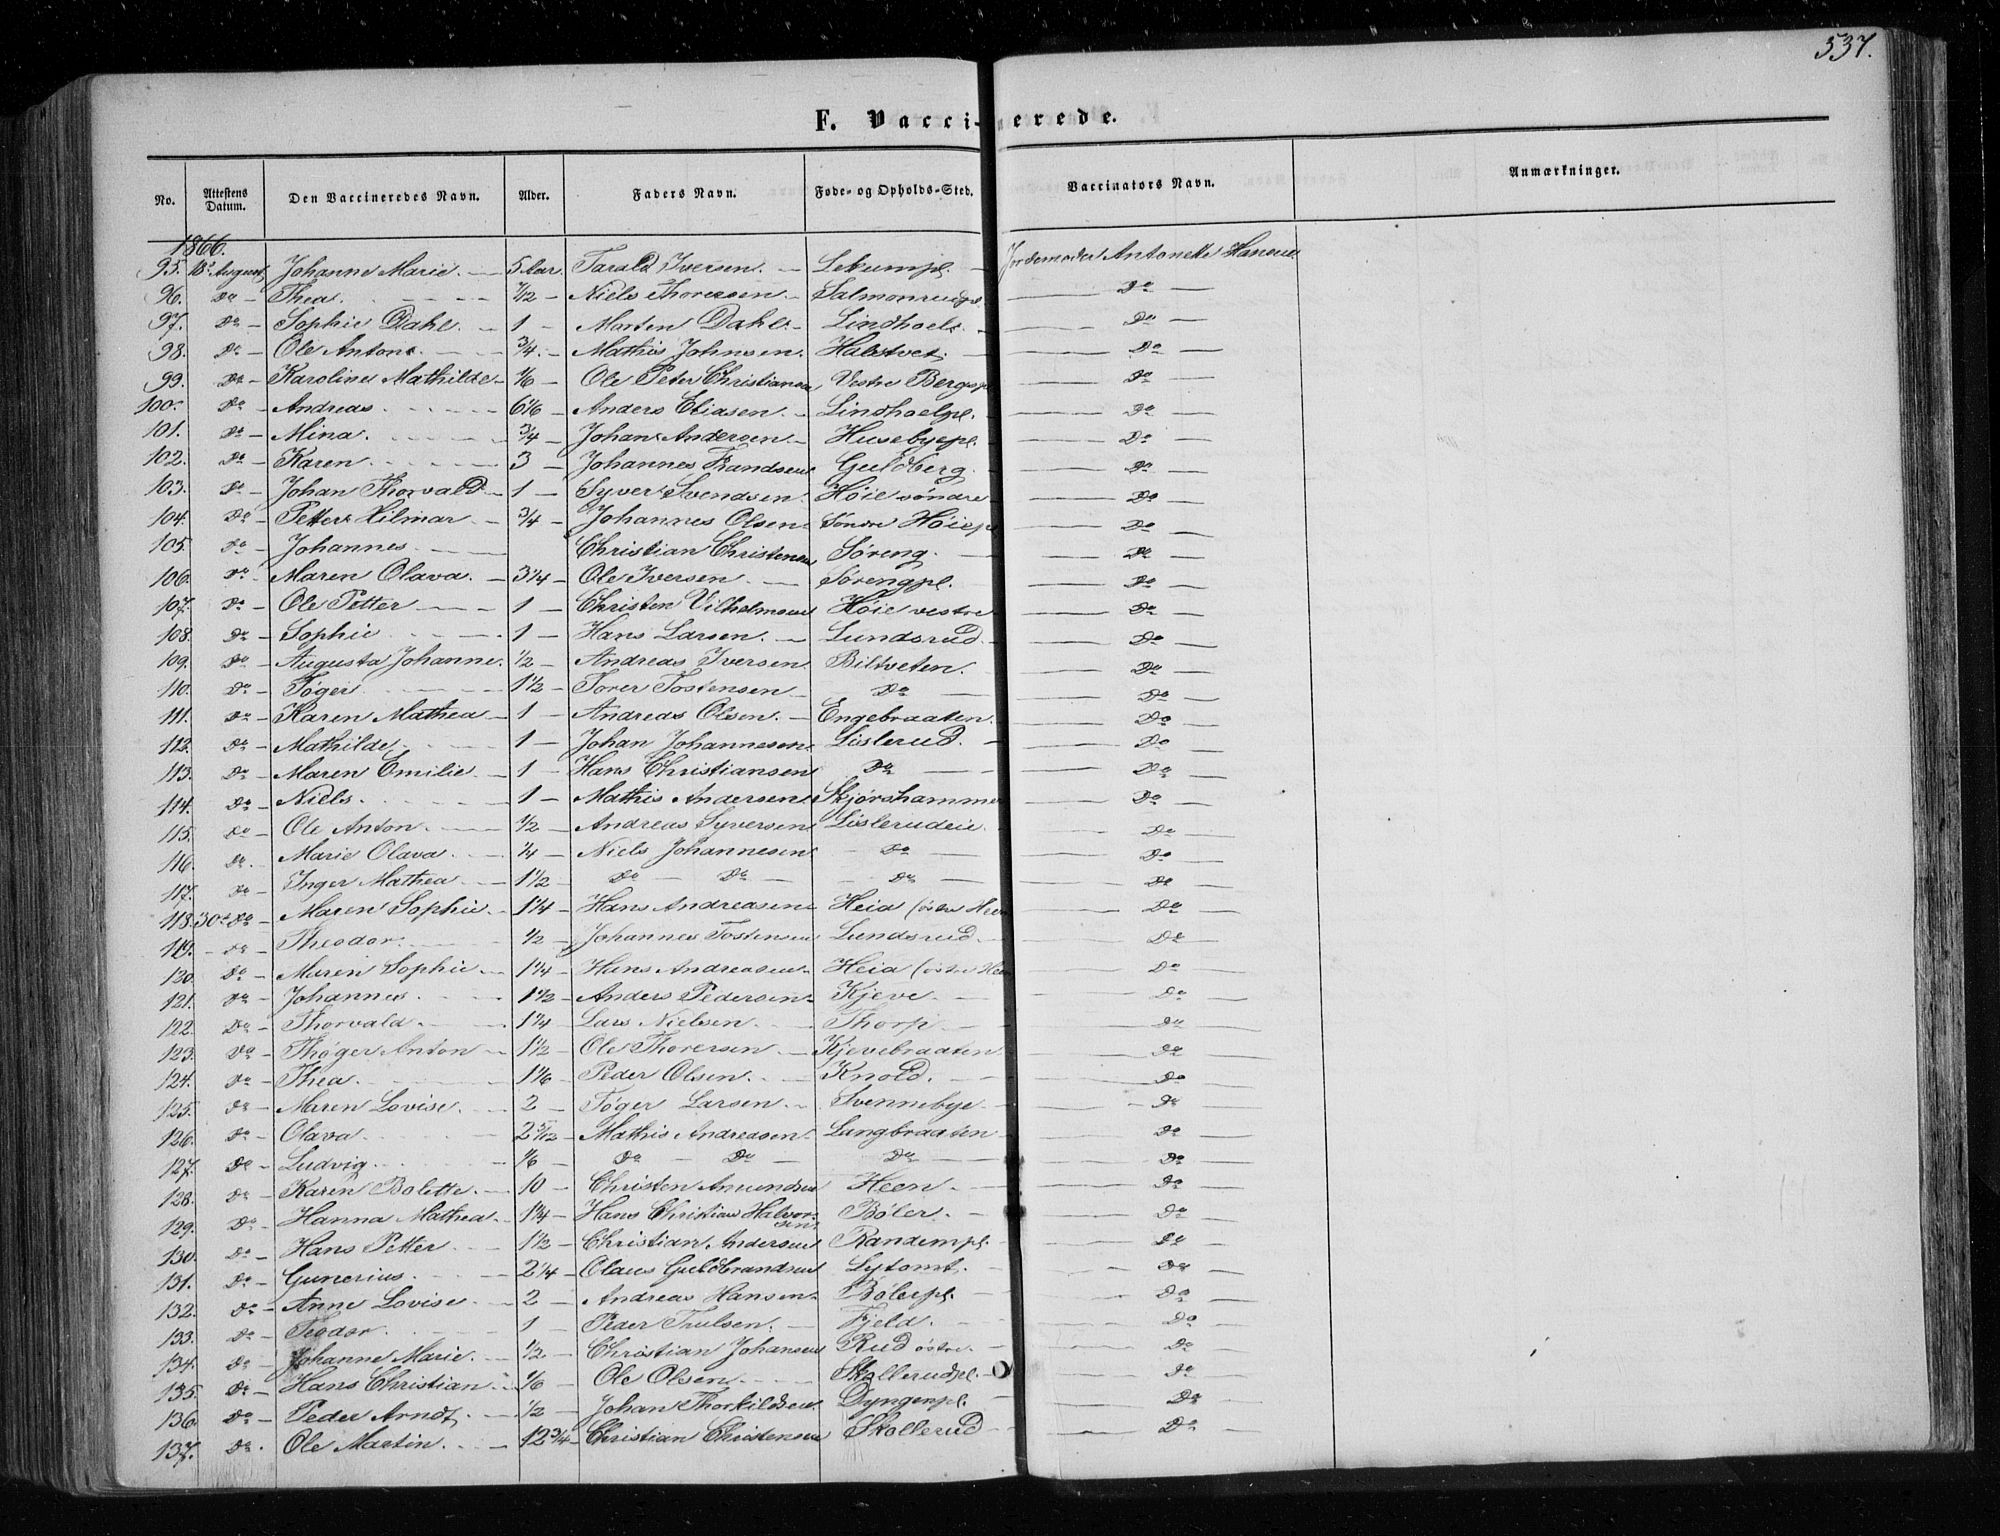 537.
F. Vaccinerede.
No. Attestens Datum. Den Vaccineredes Navn. Alder. Faders Navn. Føde- og Opholds-Sted. Vaccinators Navn. Anmærkninger.
1866.
95. 18de August Johanne Marie. 5 Aar. Tarald Iversen. Lekumpl. Jordemoder Antonette Hansen
96. Do Thea. 7/12 Niels Thoresen Salmonrudpl. Do
97. Do Sophie Dahl. 1 Morten Dahl. Lindhoel. Do
98. Do Ole Anton. 3/4 Mathis Johnsen. Halstvet. Do
99. Do Karoline Mathilde 1/6 Ole Peter Christiansen Vestre Bergspl. Do
100. Do Andreas. 6 1/6 Anders Eliasen. Lindhoelpl. Do
101. Do Mina. 3/4 Johan Andersen. Husebyepl. Do
102. Do Karen. 3 Johannes Frandsen Guldberg. Do
103. Do Johan Thorvald 1 Syver Svendsen. Høie søndre Do
104. Do Petter Hilmar 3/4 Johannes Olsen Søndre Høiepl. Do
105. Do Johannes Christian Christensen Søreng. Do
106. Do Maren Olava. 3 1/4 Ole Iversen. Sørengpl. Do
107. Do Ole Petter 1 Christen Vilhelmsen Høie vestre Do
108. Do Sophie 1 Hans Larsen. Lundsrud. Do
109. Do Augusta Johanne. 1/2 Andreas Iversen Biltveten. Do
110. Do Tøger. 1 1/2 Torer Tostensen Do Do
111. Do Karen Mathea 1 Andreas Olsen. Engebraaten. Do
112. Do Mathilde. 1 Johan Johannesen Lislerud. Do
113. Do Maren Emilie. 1 Hans Christiansen Do Do
114. Do Niels. 1 Mathis Andersen. Skjørshammer Do
115. Do Ole Anton. 1/2 Andreas Syversen Lislerudeie. Do
116. Do Marie Olava. 1/4 Niels Johannesen Do Do
117. Do Inger Mathea. 1 1/2 Do Do Do Do
118. 30te Do Maren Sophie. 1 1/4 Hans Andreasen Heia (østre Heen Do
119. Do Theodor. 1/2 Johannes Tostensen Lundsrud. Do
120. Do Maren Sophie. 1 1/4 Hans Andreasen Heia (østre Heen Do
121. Do Johannes. 1 1/2 Anders Pedersen. Kjeve. Do
122. Do Thorvald. 1 1/4 Lars Nielsen. Thorp. Do
123. Do Thøger Anton 1 1/2 Ole Thoresen. Kjevebraaten. Do
124. Do Thea. 1 1/6 Peder Olsen. Knold. Do
125. Do Maren Lovise. 2 Tøger Larsen. Svennebye. Do
126. Do Olava. 2 5/12 Mathis Andreasen. Langbraaten Do
127. Do Ludvig. 1/6 Do Do Do Do
128. Do Karen Bolette. 10 Christen Amundsen Heen. Do
129. Do Hanna Mathea. 1 1/4 Hans Christian Halvorsen. Bøler. Do
130. Do Hans Petter. 1 1/2 Christian Andersen Randempl. Do
131. Do Gunerius. 2 1/4 Olaus Guldbrandsen Lytomt. Do
132. Do Anne Lovise. 2 Andreas Hansen. Bølerpl. Do
133. Do Teodor. 1 Peder Trulsen. Fjeld. Do
134. Do Johanne Marie. 1/2 Christian Johansen Rud østre. Do
135. Do Hans Christian 1/6 Ole Olsen. Skollerudpl. Do
136. Do Peder Arndt. 1/2 Johan Thorkildsen. Dyngenpl. Do
137. Do Ole Martin. 12 3/4 Christian Christensen Skollerud Do